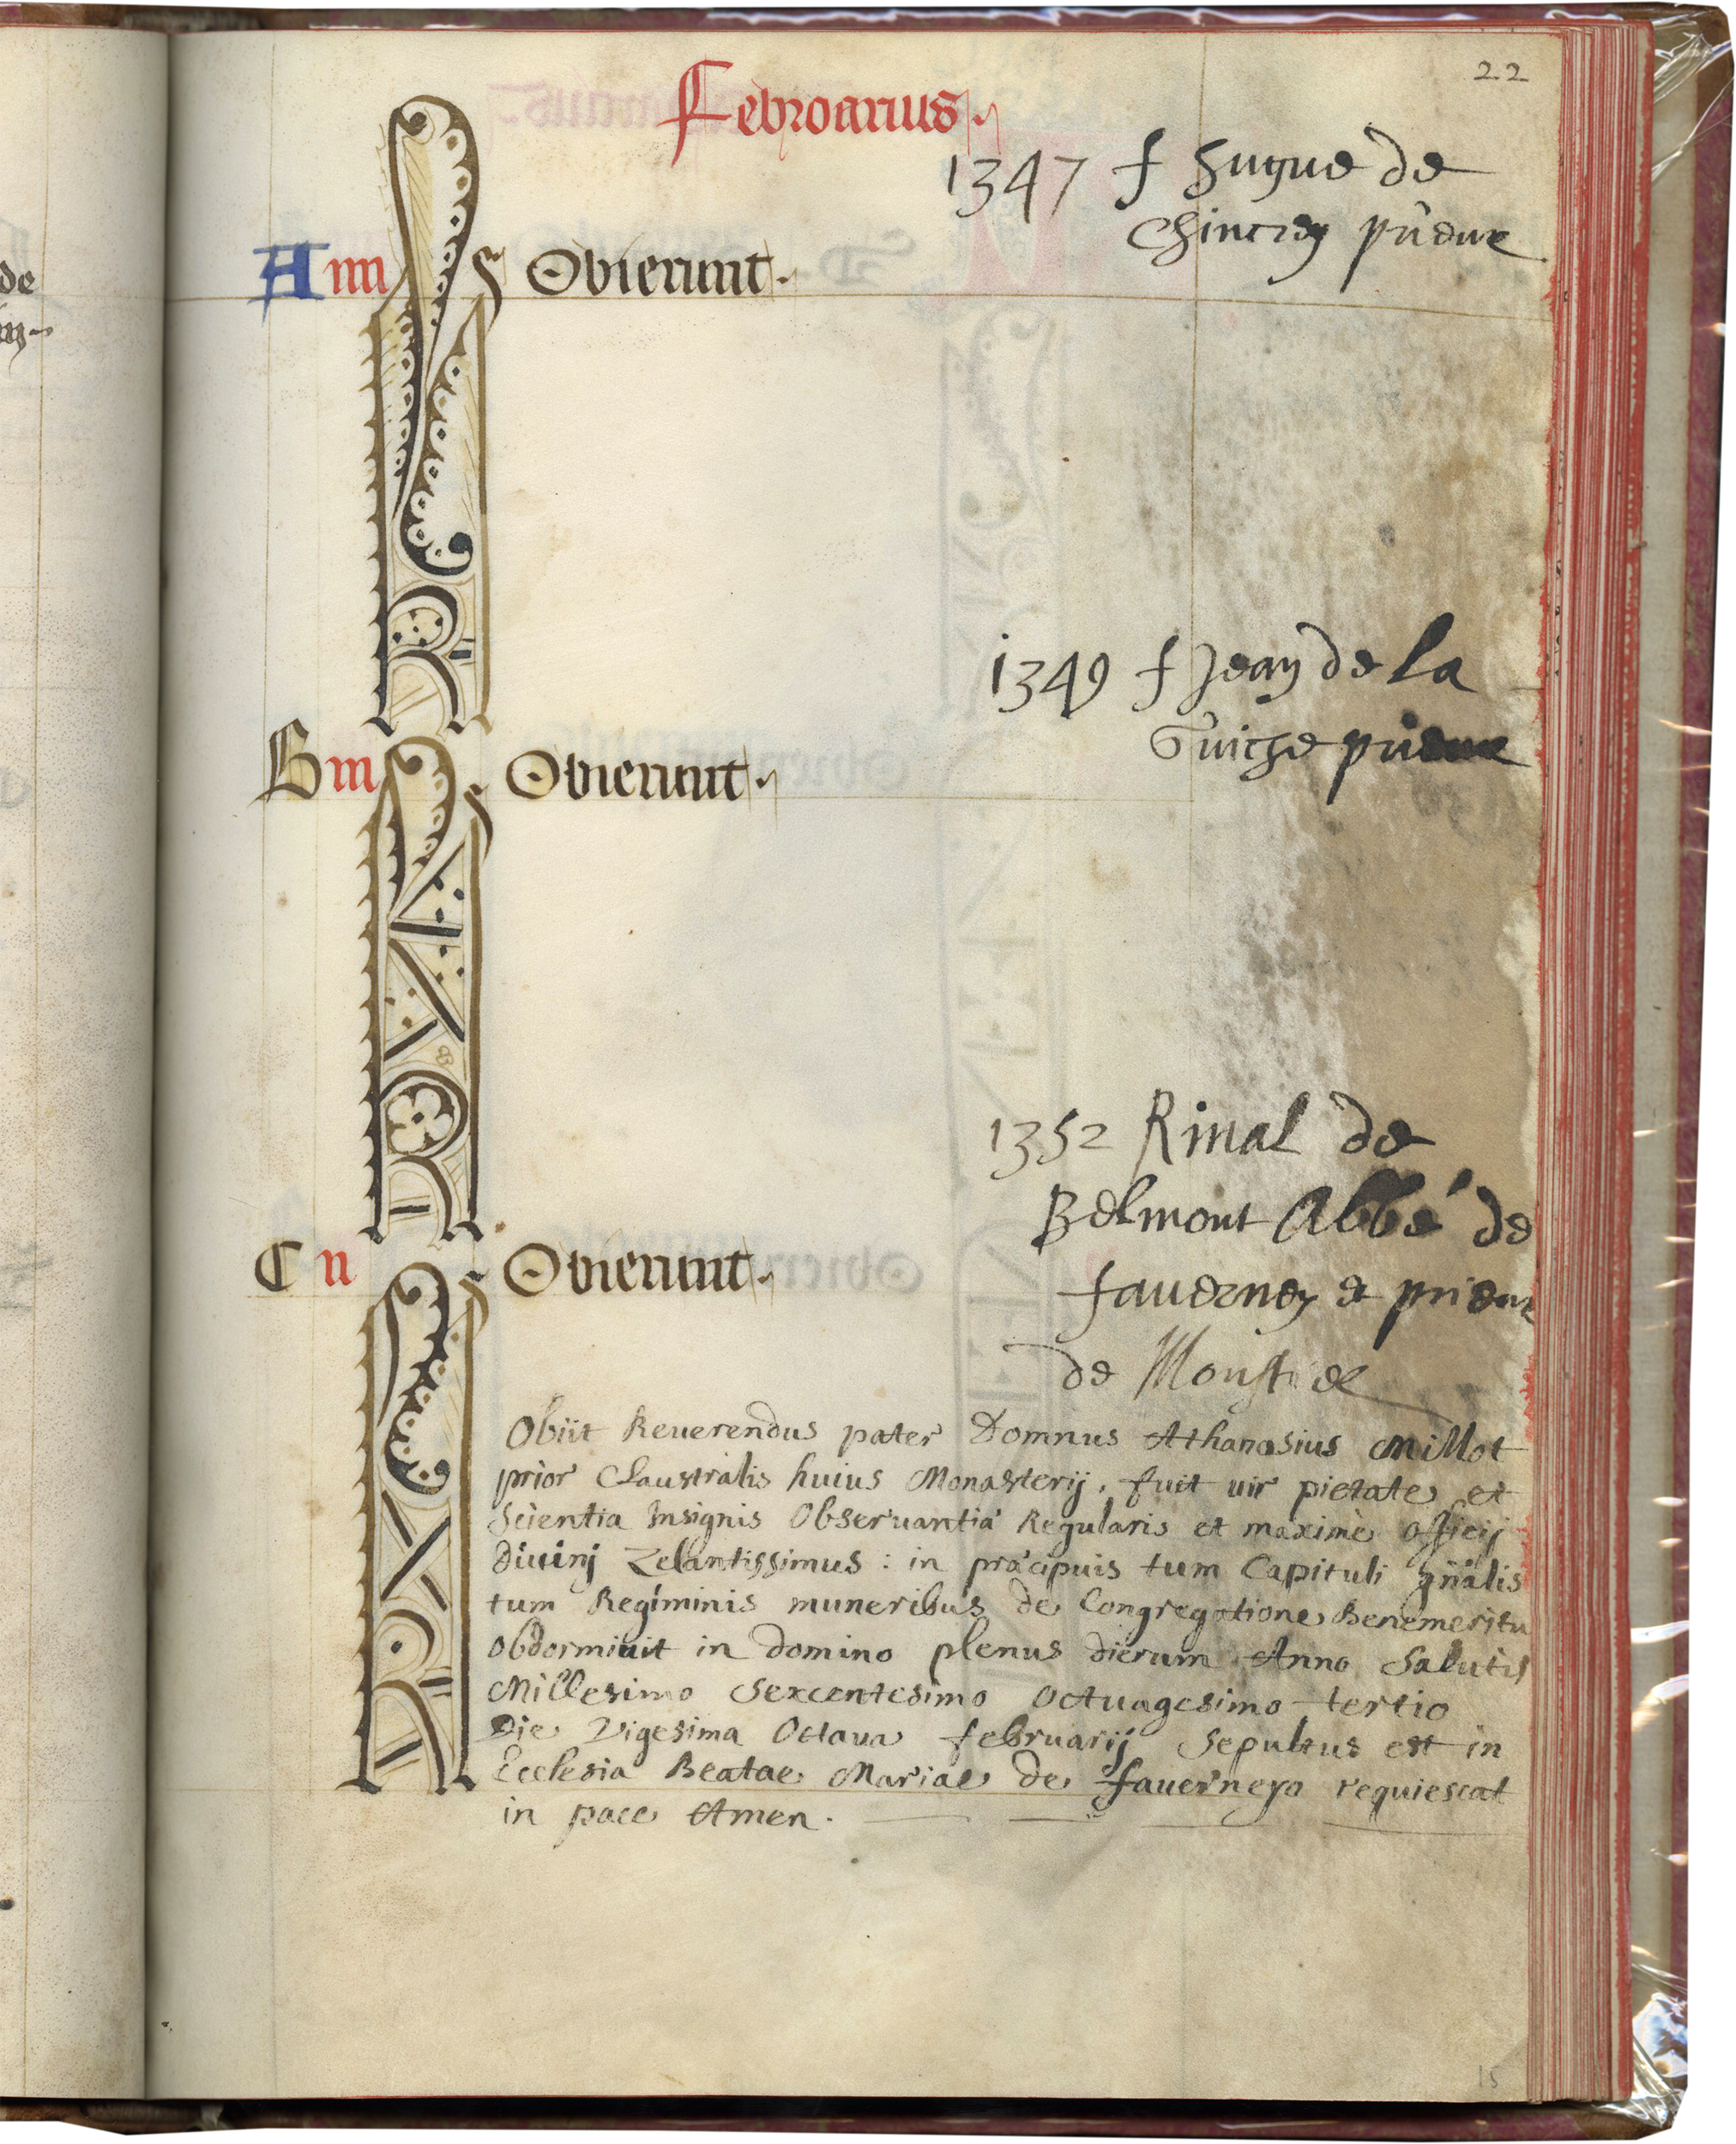 22
Februarius
1347 f hugue de
Chintrey prieur
A iiii KL Obierunt
1349 f Jean de la
Guiche prieur
B iii KL Obierunt
1352 Rinal de
Belmont Abbé de
faverney et prieur
de
C ii KL Obierunt
Obiit Reuerendus pater Domnus Athanasius Millot
prior Claustralis huius Monasterij, fuit uir pietate et
Scientia Insignis Obseruantia Regularis et maximè officij
diuinj Zelantissimus : in præcipuis tum Capituli gñalis
tum Regiminis muneribus de Congregatione Benemeritu
Obdormiuit in domino plenus dierum Anno Salutis
Millesimo Sexcentesimo Octuagesimo tertio
Die Vigesima Octaua februarij Sepultus est in
Ecclesia Beatae Mariae de fauerneyo requiescat
in pace Amen.
15